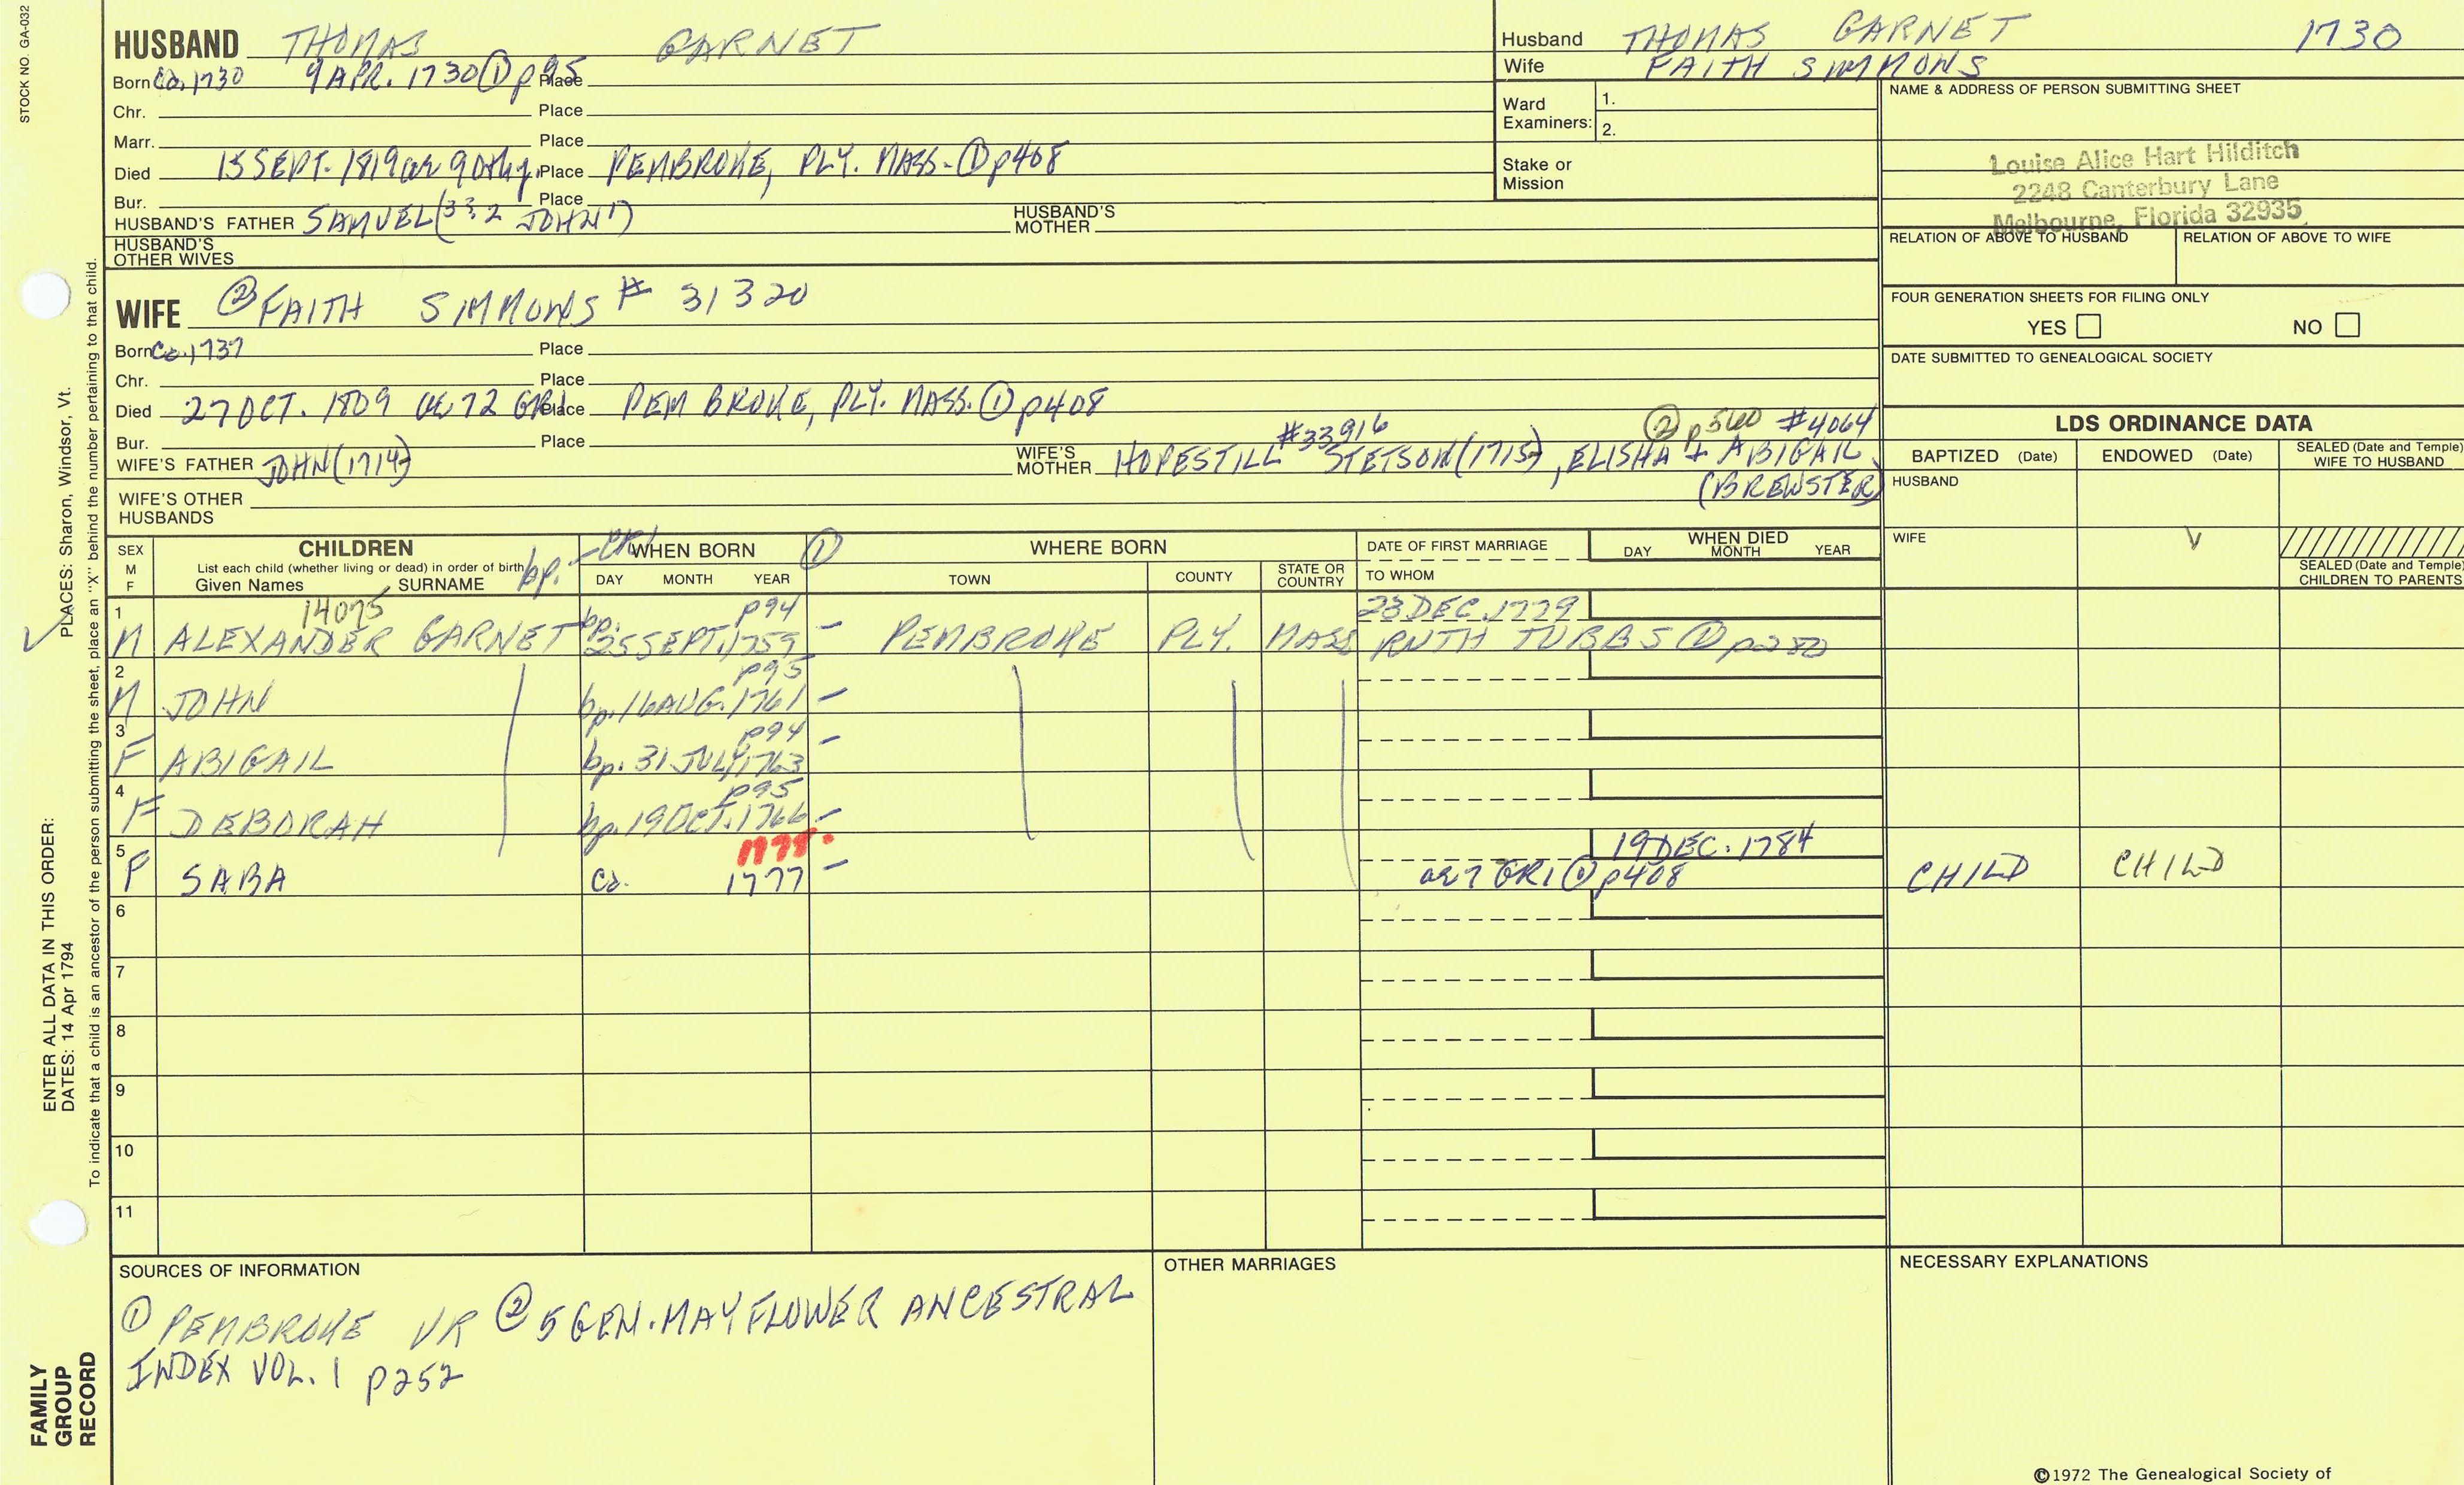 STOCK NO. GA-032
HUSBAND THOMAS GARNET
Born Ca. 1730 9 APR. 1730 ① p95 Place
Chr. Place
Marr. Place
Died 15 SEPT. 1819 in 90th y. Place PEMBROKE, PLY. MASS. ① p408
Bur. Place
HUSBAND'S FATHER SAMUEL (JOHN HUSBAND'S MOTHER
HUSBAND'S OTHER WIVES
Husband THOMAS GARNET 1730
Wife FAITH SIMMONS
Ward Examiners: 1.
2.
Stake or Mission
NAME & ADDRESS OF PERSON SUBMITTING SHEET
Louise Alice Hart Hilditch
2248 Canterbury Lane
Melbourne, Florida 32935
RELATION OF ABOVE TO HUSBAND RELATION OF ABOVE TO WIFE
FOUR GENERATION SHEETS FOR FILING ONLY
YES NO
DATE SUBMITTED TO GENEALOGICAL SOCIETY
WIFE ② FAITH SIMMONS # 31320
Born Ca. 1737 Place
Chr. Place
Died 27 OCT. 1809 ae 72 GR1 Place PEMBROKE, PLY. MASS. ① p408
Bur. Place
#33916 ② p560 #4064
WIFE'S FATHER JOHN (1714) WIFE'S MOTHER HOPESTILL STETSON (1715), ELISHA + ABIGAIL
(BREWSTER)
WIFE'S OTHER HUSBANDS
LDS ORDINANCE DATA
BAPTIZED (Date) ENDOWED (Date) SEALED (Date and Temple) WIFE TO HUSBAND
HUSBAND
WIFE V
SEALED (Date and Temple) CHILDREN TO PARENTS
SEX M F
CHILDREN
List each child (whether living or dead) in order of birth
Given Names SURNAME
bp. - CR1
WHEN BORN ①
DAY MONTH YEAR
WHERE BORN
TOWN COUNTY STATE OR COUNTRY
DATE OF FIRST MARRIAGE
TO WHOM
WHEN DIED
DAY MONTH YEAR
1 14075 p94 23 DEC. 1779
M ALEXANDER GARNET bp. 25 SEPT. 1759 - PEMBROKE PLY. MASS RUTH TUBBS ① p280
2 p95
M JOHN bp. 16 AUG. 1761 -
3 p94
F ABIGAIL bp. 31 JULY 1763 -
4 p95
F DEBORAH bp. 19 OCT. 1766 -
5 1778. 19 DEC. 1784
F SABA Ca. 1777 - ae 7 GR1 ① p408 CHILD CHILD
6
7
8
9
10
11
SOURCES OF INFORMATION
① PEMBROKE VR ② 5 GEN. MAYFLOWER ANCESTRAL
INDEX VOL. 1 p252
OTHER MARRIAGES
NECESSARY EXPLANATIONS
©1972 The Genealogical Society of
ENTER ALL DATA IN THIS ORDER:
DATES: 14 Apr 1794 PLACES: Sharon, Windsor, Vt.
To indicate that a child is an ancestor of the person submitting the sheet, place an "X" behind the number pertaining to that child.
FAMILY
GROUP
RECORD